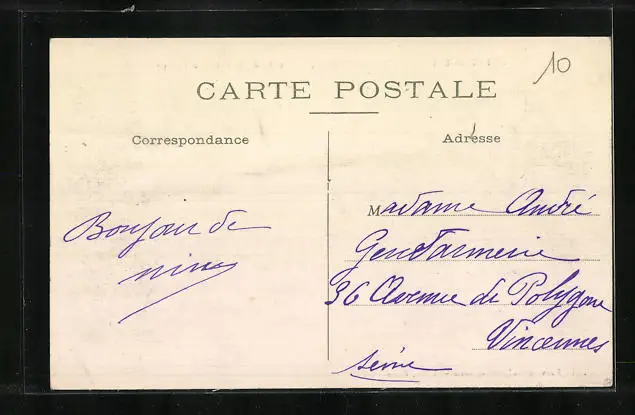 10
CARTE POSTALE
Correspondance
Adresse
Bonjour de
nine
Madame André
Gendarmerie
36 Avenue de Polygone
Vincennes
Seine